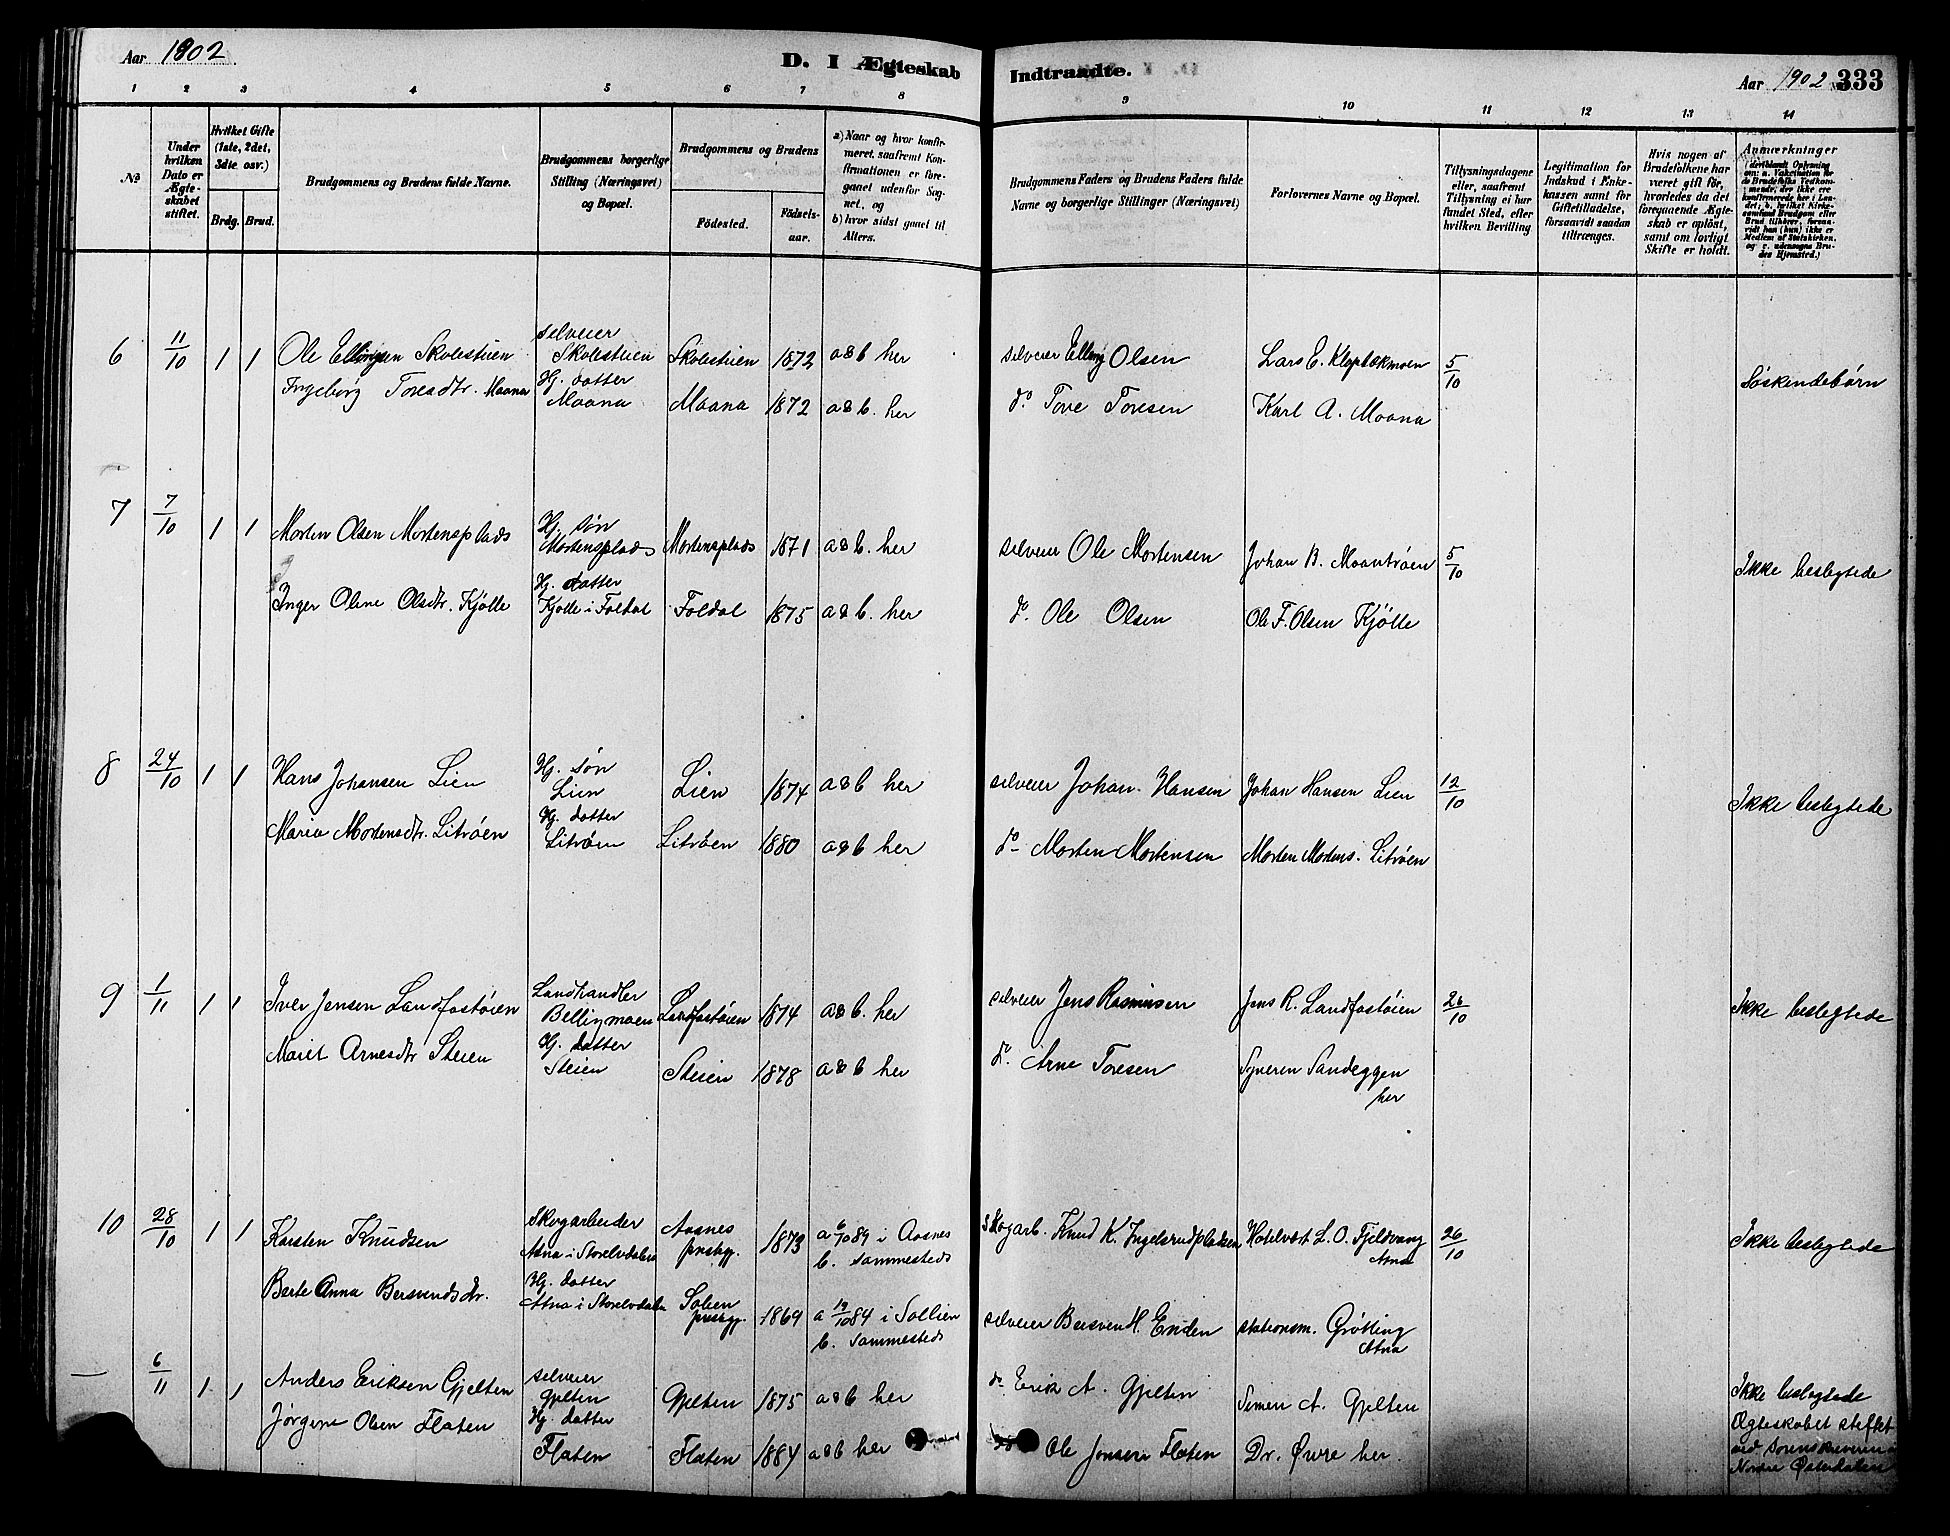 Aar 1902
D. I Ægteskab Indtraadte.
Aar 1902 333
1 2 3 4 5 6 7 8 9 10 11 12 13 14
No
Under hvilken Dato er Ægteskabet stiftet.
Hvilket Gifte (1ste, 2det, 3die osv.)
Brdg. Brud.
Brudgommens og Brudens fulde Navne.
Brudgommens borgerlige Stilling (Næringsvei) og Bopæl.
Brudgommens og Brudens
Födested. Födselsaar.
a) Naar og hvor konfirmeret, saafremt Konfirmationen er foregaaet udenfor Sognet, og
b) hvor sidst gaaet til Alters.
Brudgommens Faders og Brudens Faders fulde Navne og borgerlige Stillinger (Næringsvei)
Forlovernes Navne og Bopæl.
Tillysningsdagene eller, saafremt Tillysning ei har fundet Sted, efter hvilken Bevilling
Legitimation for Indskud i Enkekassen samt for Giftetilladelse, forsaavidt saadan tiltrænges.
Hvis nogen af Brudefolkene har været gift før, hvorledes da det foregaaende Ægteskab er opløst, samt om lovligt Skifte er holdt.
Anmærkninger
(deriblandt Oplysning om: a. Vaksination for de Brudefolks Vedkommende, der ikke ere konfirmerede her i Landet; b. hvilket Kirkesamfund Brudgom eller Brud tilhører, forsaavidt han (hun) ikke er Medlem af Statskirken, og c. udensogns Brudes Hjemsted.)
6 11/10 1 1 Ole Ellingsen Skolestuen selveier Skolestuen Skolestuen 1872 a & b her selveier Elling Olsen Lars E. Kløptekmoen 5/10 Søskendebørn
Ingeborg Toresdtr. Moana Hj. datter Moana Moana 1872 a & b. her do Tore Toresen Karl A. Moana
7 7/10 1 1 Morten Olsen Mortensplads Hj. søn Mortensplads Mortensplads 1871 a & b. her selveier Ole Mortensen Johan B. Moantrøen 5/10 Ikke beslegtede
Inger Oline Olsdtr. Kjølle Hj. datter Kjølle i Foldal Foldal 1875 a & b. her do Ole Olsen Ole F. Olsen Kjølle
8 24/10 1 1 Hans Johansen Lien Hj. søn Lien Lien 1874 a & b her selveier Johan Hansen Johan Hansen Lien 12/10 Ikke beslegtede
Maria Mortensdtr. Litrøen Hj. datter Litrøen Litrøen 1880 a & b her do Morten Mortensen Morten Mortens. Litrøen
9 1/11 1 1 Iver Jensen Landfastøien Landhandler Bellingmoen Landfastøien 1874 a & b. her selveier Jens Rasmusen Jens R. Landfastøien 26/10 Ikke beslegtede
Maret Arnesdtr Steien Hj. datter Steien Steien 1878 a & b her do Arne Toresen Syveren Sandeggen her
10 28/10 1 1 Karsten Knudsen Skogarbeider Atna i Storelvdalen Aasnes prstgj. 1873 a 6/10 89 i Aasnes b. sammesteds Skogarb. Knud K. Ingelsrudpladsen Hotelvært L. O. Fjeldvang Atna 26/10 Ikke beslegtede
Berte Anna Bersvendsdtr. Hj. datter Atna i Storelvdalen Solien prstgj. 1869 a 19/10 84 i Sollien b. sammesteds selveier Bersven H. Enden stationsm. Grötting Atna
— 6/11 1 1 Anders Eriksen Gjelten selveier Gjelten Gjelten 1875 a & b her do Erik A. Gjelten Simen A. Gjelten Ikke beslegtede
Jørgine Olsen Flaten Hj. datter Flaten Flaten 1884 a & b her do Ole Jonsen Flaten Dr. Øvre her. Ægteskabet stiftet ved Sorenskriveren i Nordre Østerdalen